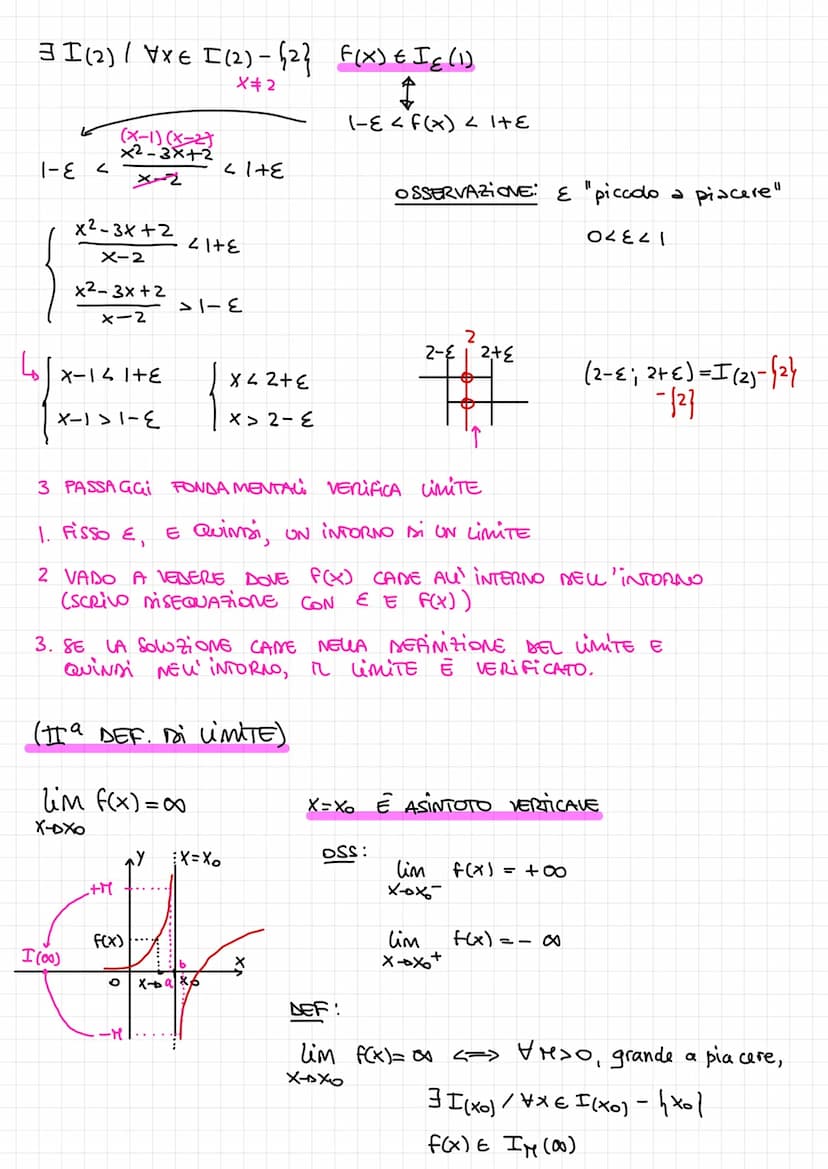 ∃ I(2) / ∀x ∈ I(2) - {2} f(x) ∈ Iε(1)
x ≠ 2
↕
1-ε < f(x) < 1+ε
(x-1)(x-2)
1-ε < (x²-3x+2)/(x-2) < 1+ε
OSSERVAZIONE: ε "piccolo a piacere"
0<ε<1
{ (x²-3x+2)/(x-2) < 1+ε
(x²-3x+2)/(x-2) > 1-ε
↳ { x-1 < 1+ε { x < 2+ε
x-1 > 1-ε x > 2-ε
2
2-ε 2+ε
(2-ε; 2+ε) = I(2) - {2}
- {2}
3 PASSAGGI FONDAMENTALI VERIFICA LIMITE
1. FISSO ε, E QUINDI, UN INTORNO DI UN LIMITE
2 VADO A VEDERE DOVE f(x) CADE ALL'INTERNO DELL'INTORNO
(SCRIVO DISEQUAZIONE CON ε E f(x))
3. SE LA SOLUZIONE CADE NELLA DEFINIZIONE DEL LIMITE E
QUINDI NELL'INTORNO, IL LIMITE È VERIFICATO.
(IIª DEF. DI LIMITE)
lim f(x) = ∞
x→x₀
x=x₀ È ASINTOTO VERTICALE
y x=x₀
+M
f(x)
I(∞)
b
x
0 x→ a x₀
-M
OSS:
lim f(x) = +∞
x→x₀⁻
lim f(x) = - ∞
x→x₀⁺
DEF:
lim f(x) = ∞ <=> ∀M>0, grande a piacere,
x→x₀
∃ I(x₀) / ∀x ∈ I(x₀) - {x₀}
f(x) ∈ I_M(∞)